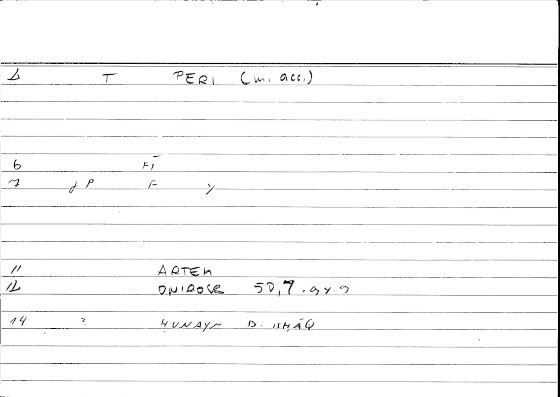 T PERI (m. acc.)
6 FĪ
7 P F y
11 ARTEM
12 ONIROCR 50,7
14 ? HUNAYN B. ISHĀQ